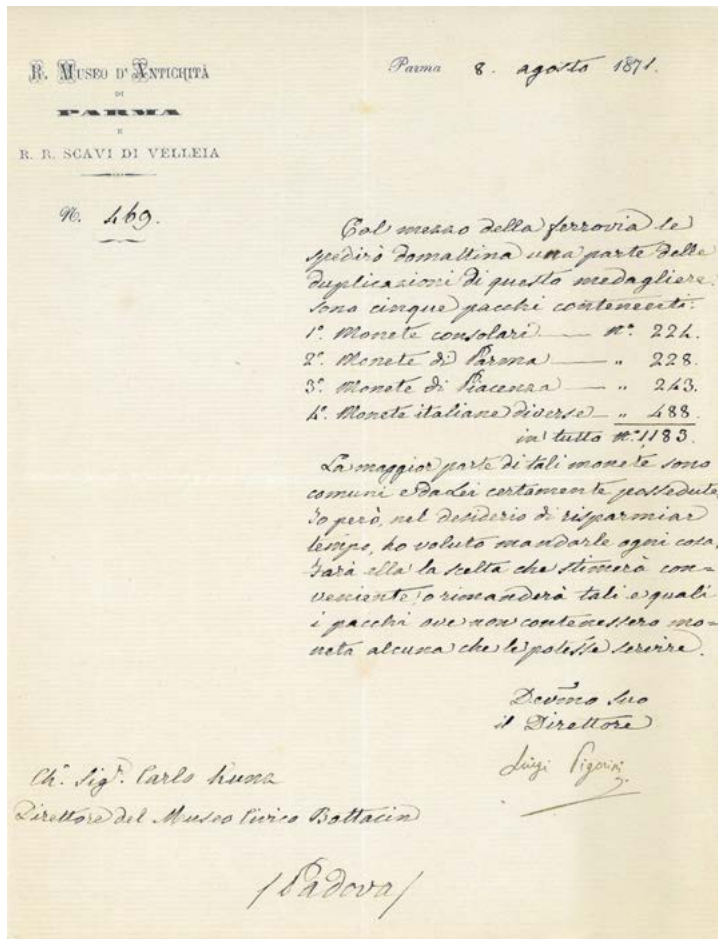 R. MUSEO D'ANTICHITÀ
DI
PARMA
E
R. R. SCAVI DI VELLEIA
N. 469.
Parma 8. agosto 1871.
Col mezzo della ferrovia le
spedirò domattina una parte delle
duplicazioni di questo medagliere.
Sono cinque pacchi contenenti:
1º. Monete consolari — nº. 224.
2º. Monete di Parma — „ 228.
3º. Monete di Piacenza — „ 243.
4º. Monete italiane diverse — „ 488.
in tutto nº. 1183.
La maggior parte di tali monete sono
comuni e da Lei certamente possedute.
Io però, nel desiderio di risparmiar
tempo, ho voluto mandarle ogni cosa.
Farà ella la scelta che stimerà con=
veniente, o rimanderà tali e quali
i pacchi ove non contenessero mo=
neta alcuna che le potesse servire.
Devmo suo
il Direttore
Luigi Pigorini
Ch. Sigr. Carlo Kunz
Direttore del Museo Civico Bottacin
/Padova/